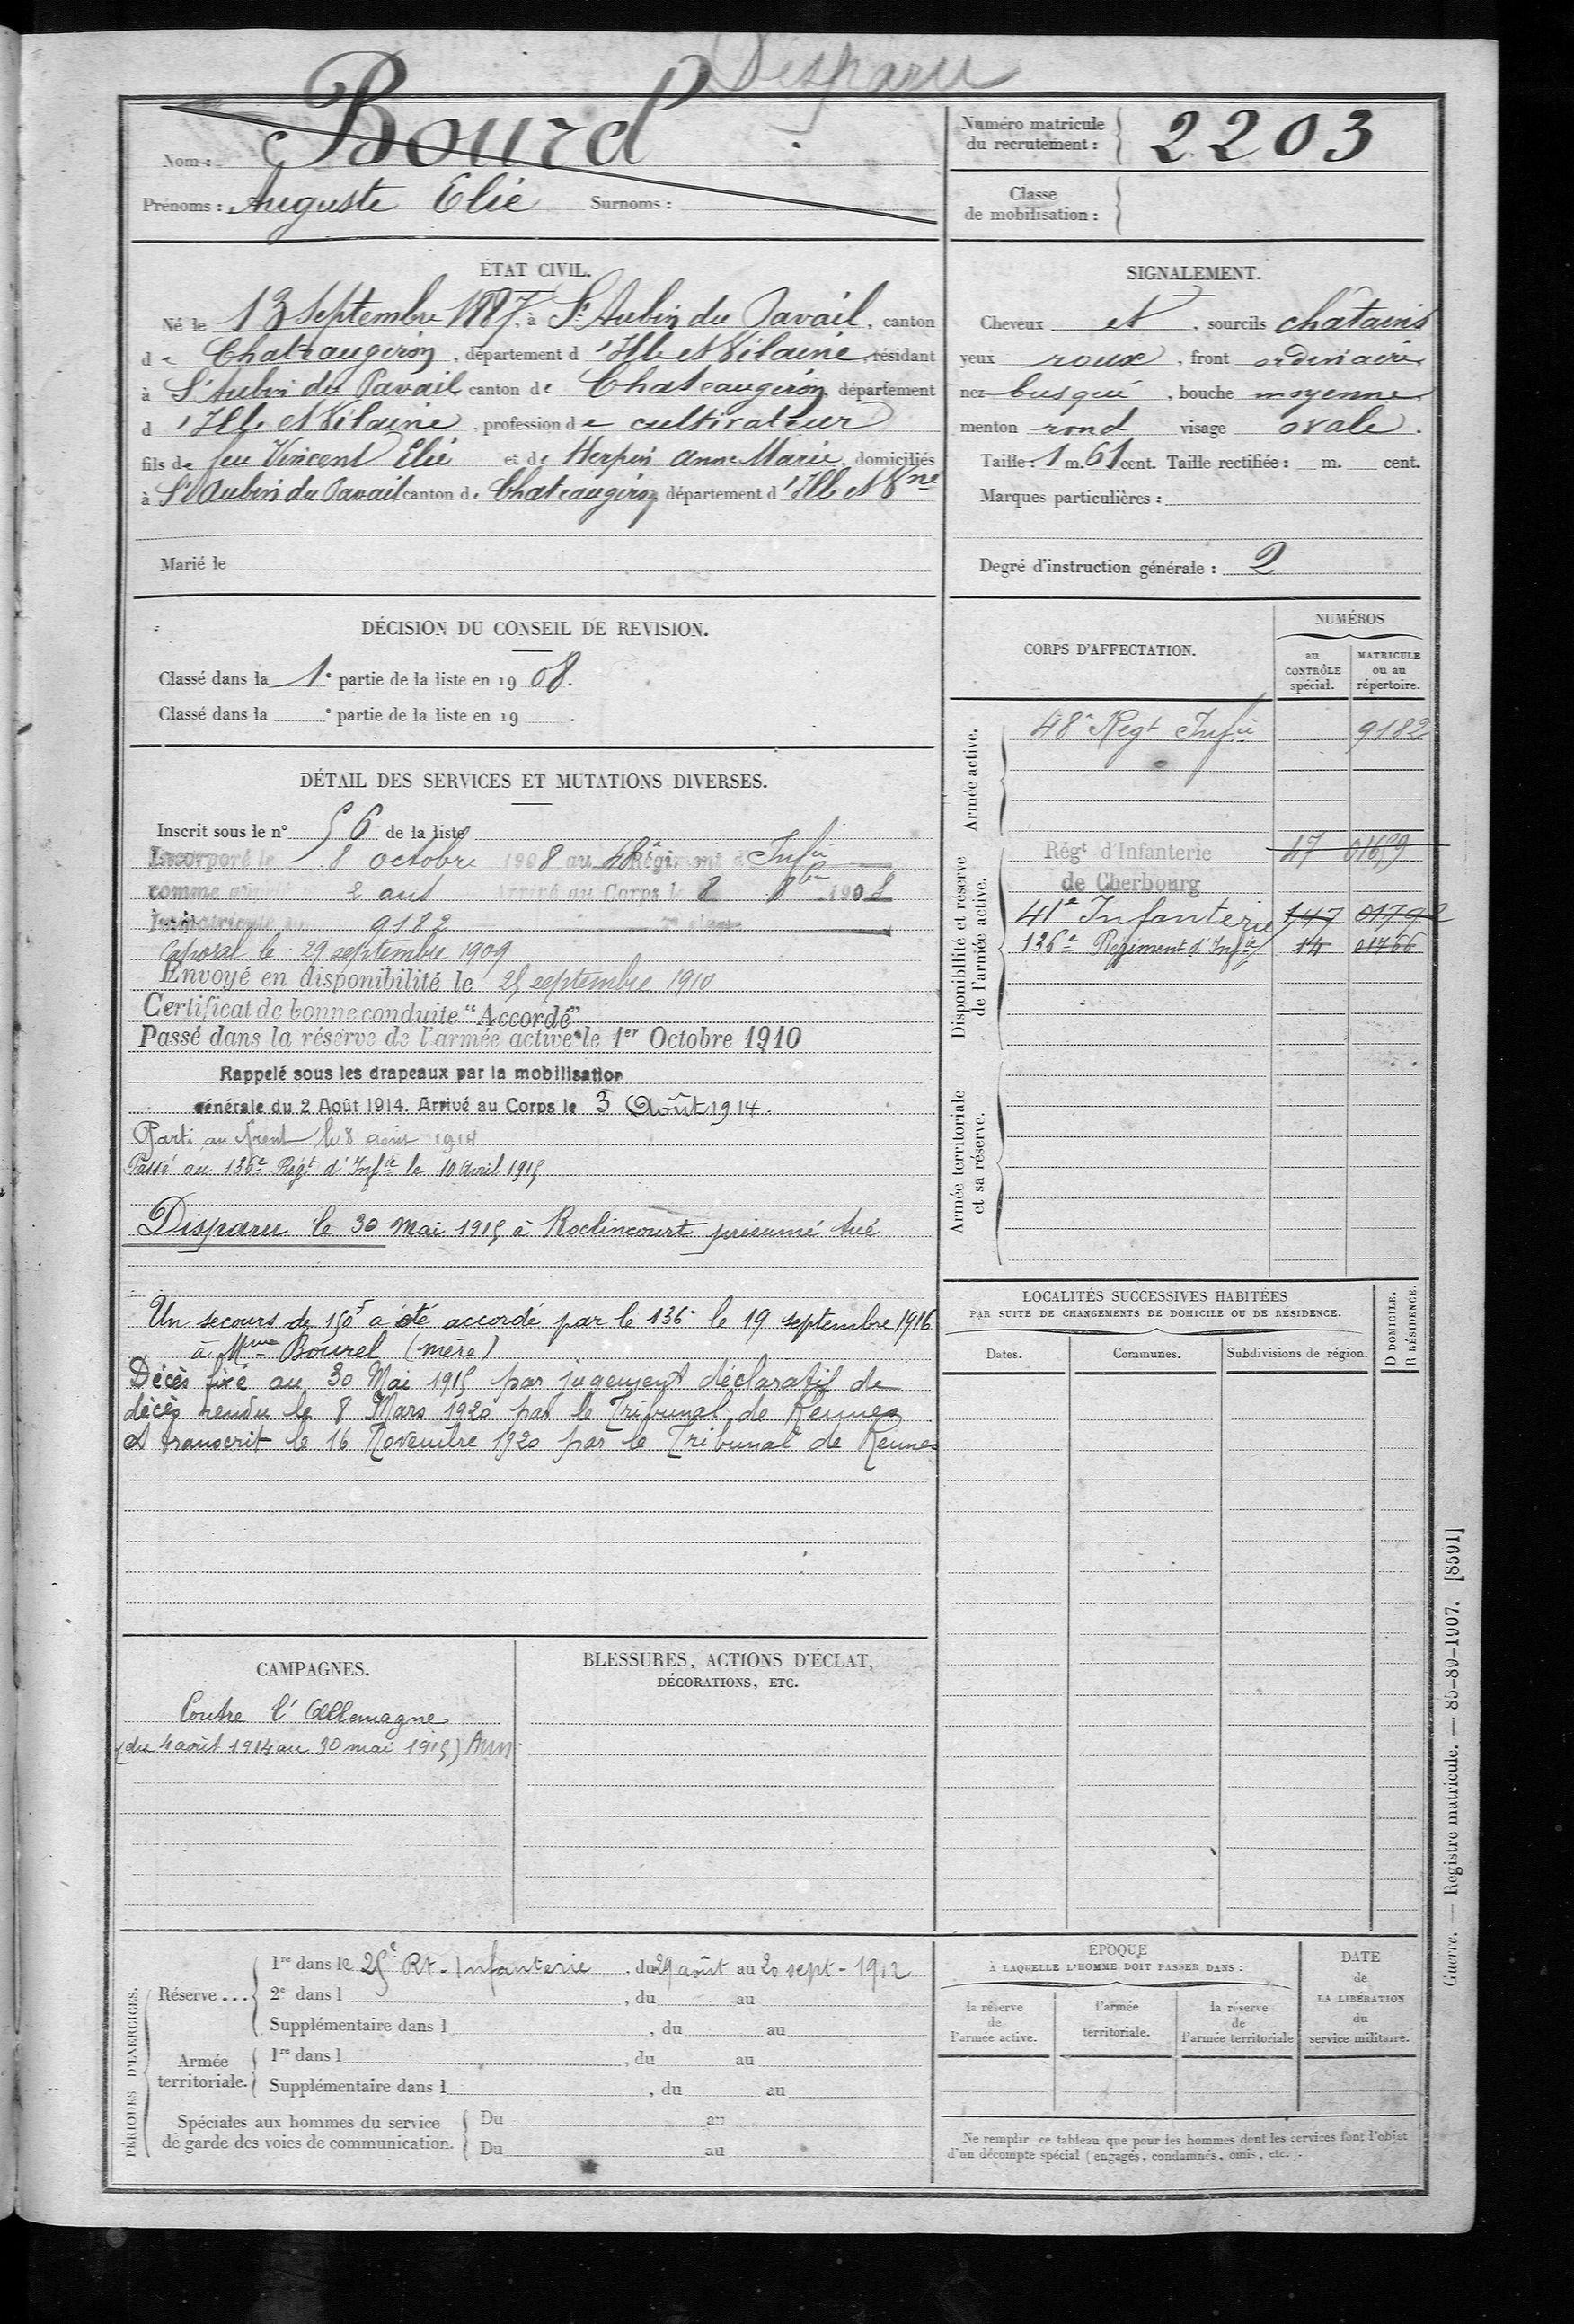 Disparu
Nom : Bourel
Prénoms : Auguste Elie Surnoms :
Numéro matricule du recrutement : 2203
Classe de mobilisation :
ÉTAT CIVIL.
Né le 13 Septembre 1887, à St Aubin du Pavail, canton
de Chateaugiron, département d'Ille et Vilaine, résidant
à St Aubin du Pavail canton de Chateaugiron, département
d'Ille et Vilaine, profession de cultivateur
fils de feu Vincent Elie et de Herpin Anne Marie, domiciliés
à St Aubin du Pavail canton de Chateaugiron, département d'Ille et Vne
Marié le
SIGNALEMENT.
Cheveux et, sourcils châtains
yeux roux, front ordinaire
nez busqué, bouche moyenne
menton rond visage ovale.
Taille : 1 m. 61 cent. Taille rectifiée : m. cent.
Marques particulières :
Degré d'instruction générale : 2
DÉCISION DU CONSEIL DE REVISION.
Classé dans la 1e partie de la liste en 1908.
Classé dans la e partie de la liste en 19 .
DÉTAIL DES SERVICES ET MUTATIONS DIVERSES.
Inscrit sous le n° 56 de la liste
Incorporé le 8 octobre 1908 au 48 Régiment d'Infie
comme appelé 2 ans Arrivé au Corps le 8 8bre 1908
Immatriculé 9182
Caporal le 29 septembre 1909
Envoyé en disponibilité le 25 septembre 1910
Certificat de bonne conduite "Accordé"
Passé dans la réserve de l'armée active le 1er Octobre 1910
Rappelé sous les drapeaux par la mobilisation
générale du 2 Août 1914. Arrivé au Corps le 3 Août 1914.
Parti au front le 8 août 1914
Passé au 136e Régt d'Infie le 10 Avril 1915
Disparu le 30 Mai 1915 à Roclincourt présumé tué
Un secours de 150f a été accordé par le 136e le 19 septembre 1916
à Mme Bourel (mère).
Décès fixé au 30 Mai 1915 par jugement déclaratif de
décès rendu le 8 Mars 1920 par le Tribunal de Rennes
et transcrit le 16 Novembre 1920 par le Tribunal de Rennes
CORPS D'AFFECTATION.
NUMÉROS
au CONTRÔLE spécial.
MATRICULE ou au répertoire.
Armée active.
48e Regt Infie 9182
Disponibilité et réserve de l'armée active.
Régt d'Infanterie 47 01659
de Cherbourg
41e Infanterie 147 01792
136e Régiment d'Infie 14 01766
Armée territoriale et sa réserve.
LOCALITÉS SUCCESSIVES HABITÉES
PAR SUITE DE CHANGEMENTS DE DOMICILE OU DE RÉSIDENCE.
Dates. Communes. Subdivisions de région. D DOMICILE. R RÉSIDENCE.
CAMPAGNES.
Contre l'Allemagne
(du 4 août 1914 au 30 mai 1915)
BLESSURES, ACTIONS D'ÉCLAT,
DÉCORATIONS, ETC.
PÉRIODES D'EXERCICES.
Réserve ...
1re dans le 25e Rt. Infanterie, du 29 août au 20 sept - 1912
2e dans l , du au
Supplémentaire dans l , du au
Armée territoriale.
1re dans l , du au
Supplémentaire dans l , du au
Spéciales aux hommes du service
de garde des voies de communication.
Du au
Du au
ÉPOQUE
À LAQUELLE L'HOMME DOIT PASSER DANS :
la réserve de l'armée active.
l'armée territoriale.
la réserve de l'armée territoriale
DATE de LA LIBÉRATION du service militaire.
Ne remplir ce tableau que pour les hommes dont les services font l'objet
d'un décompte spécial (engagés, condamnés, omis, etc.).
Guerre. — Registre matricule. — 85-89-1907. [8591]